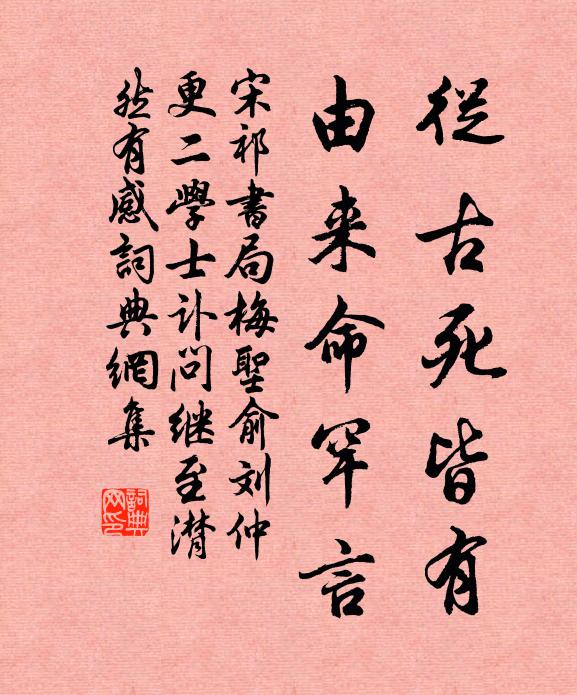 從古死皆有
由来命罕言
宋祁書局梅聖俞刘仲
更二學士訃问继至潸
然有感詞典網集
詞典网印